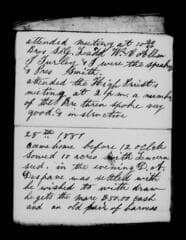 attended meeting at 10 30
of Turley & I were the speak
& Pres Smith,
attended the High Priest's
meeting at 2 p.m. a number
of the Brethren spoke very
good & instructive
25th 1881
Came home before 12 oclock
Sowed 10 acres with Lucern
seed, in the evening
was settled with
he wished to with draw
he gets the mare $50.00 cash
and an old pair of harness